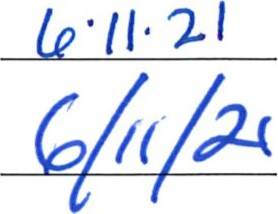 6.11.21
6/11/21